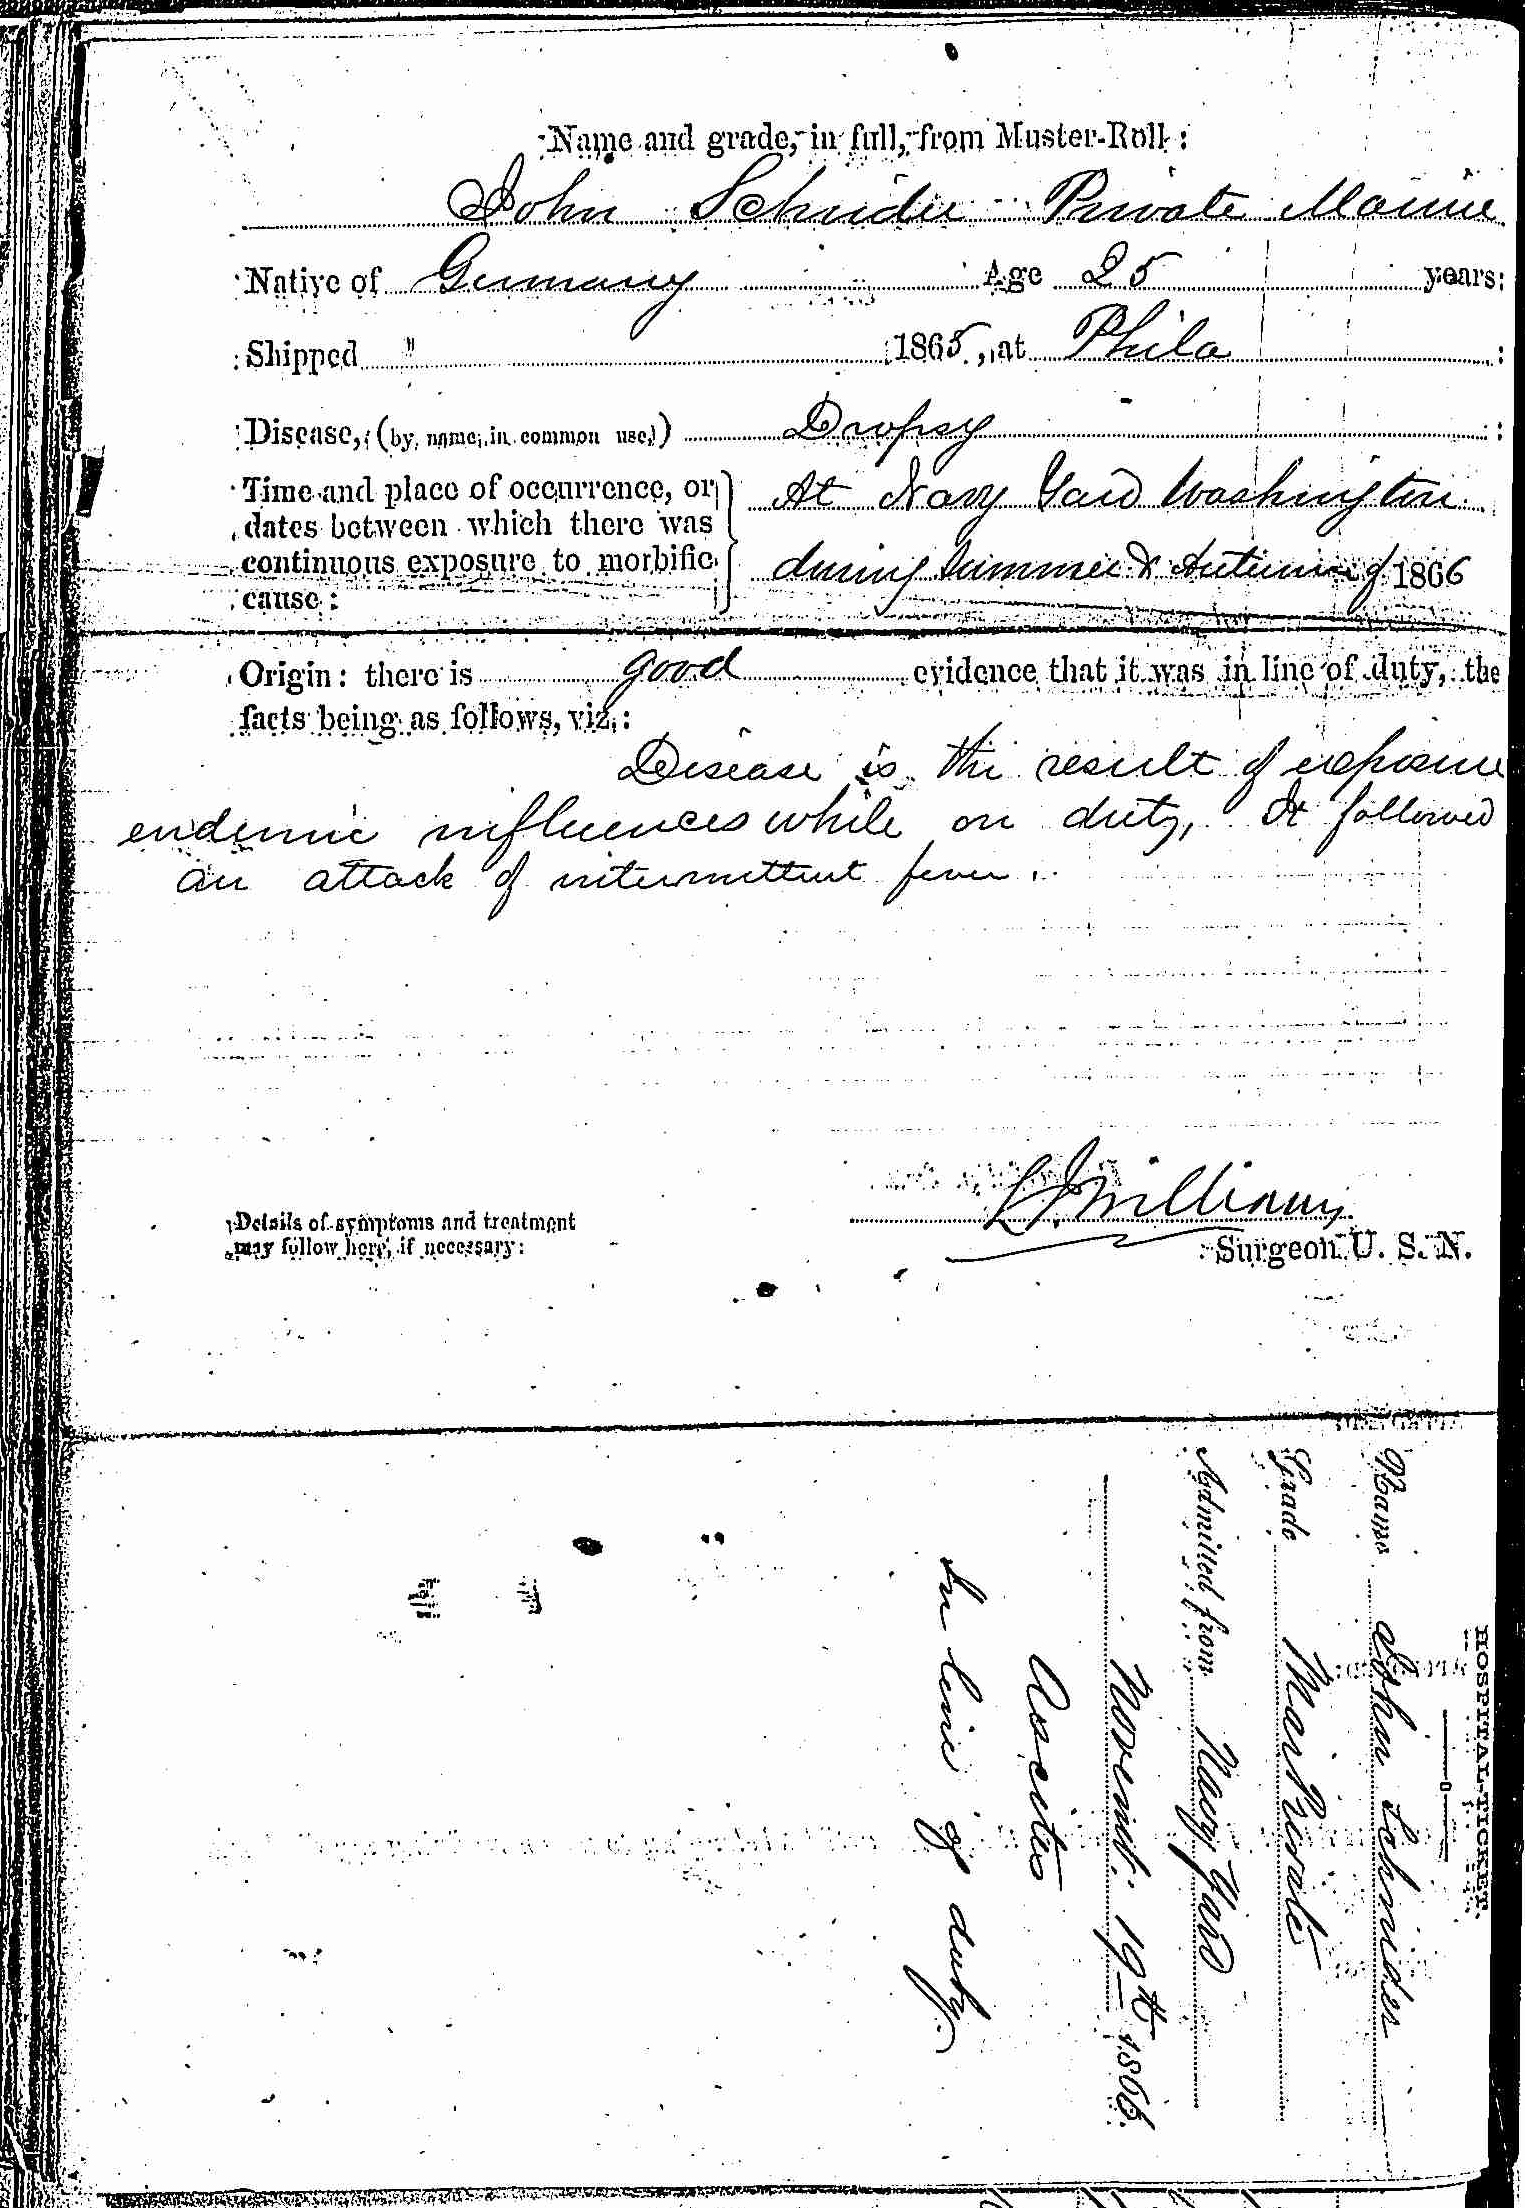 Name and grade, in full, from Muster-Roll:
John Schnider Private Marine
Native of Germany Age 25 years:
Shipped " 1865, at Phila :
Disease, (by name in common use,) Dropsy :
Time and place of occurrence, or At Navy Yard Washington
dates between which there was
continuous exposure to morbific during Summer & Autumn of 1866
cause:
Origin: there is good evidence that it was in line of duty, the
facts being as follows, viz,:
Disease is the result of exposure
endemic influences while on duty, It followed
an attack of intermittent fever.
Williams
Details of symptoms and treatment
may follow here, if necessary:
Surgeon U. S. N.
HOSPITAL-TICKET.
Name John Schnider
Grade Mar Private
Admitted from Navy Yard
Novemb. 19th 1866
Ascites
In line of duty